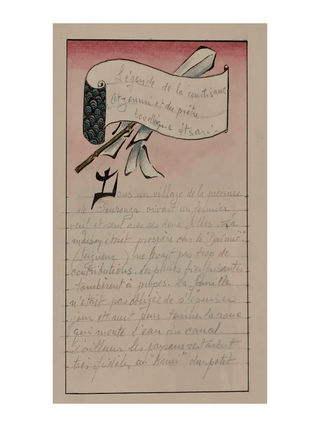 Légende de la courtisane
et du prêtre
Dans un village de la province
de Sourouga vivait un fermier
veuf et seul avec ses deux filles. La
maison était prospère car le "daimiô"
(seigneur) ne levait pas trop de
contributions, des pluies bienfaisantes
tombèrent à propos. La famille
n'était pas obligée de s'épuiser
jour et nuit pour tourner la roue
qui monte l'eau du canal
D'ailleurs les paysans restaient
très fidèles au "Kami" du petit